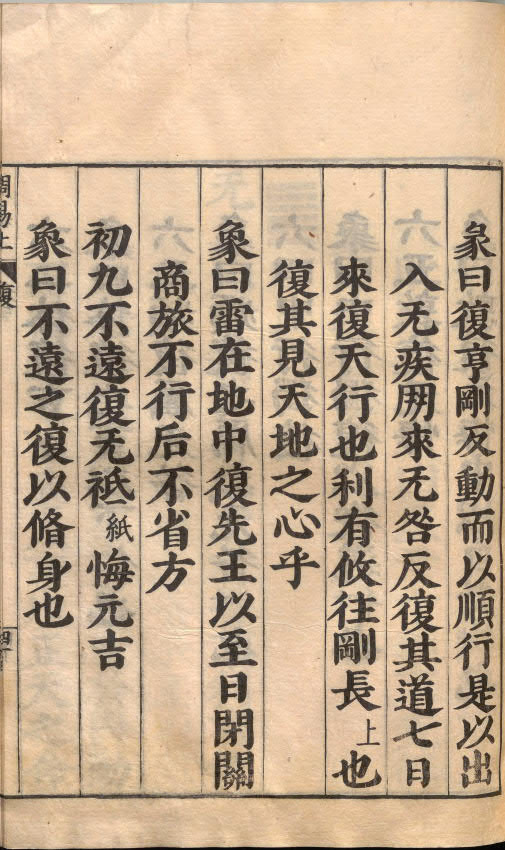 彖曰復亨剛反動而以順行是以出
入无疾朋來无咎反復其道七日
來復天行也利有攸往剛長上也
復其見天地之心乎
象曰雷在地中復先王以至日閉關
商旅不行后不省方
初九不遠復无祗紙悔元吉
象曰不遠之復以脩身也
周易上 復